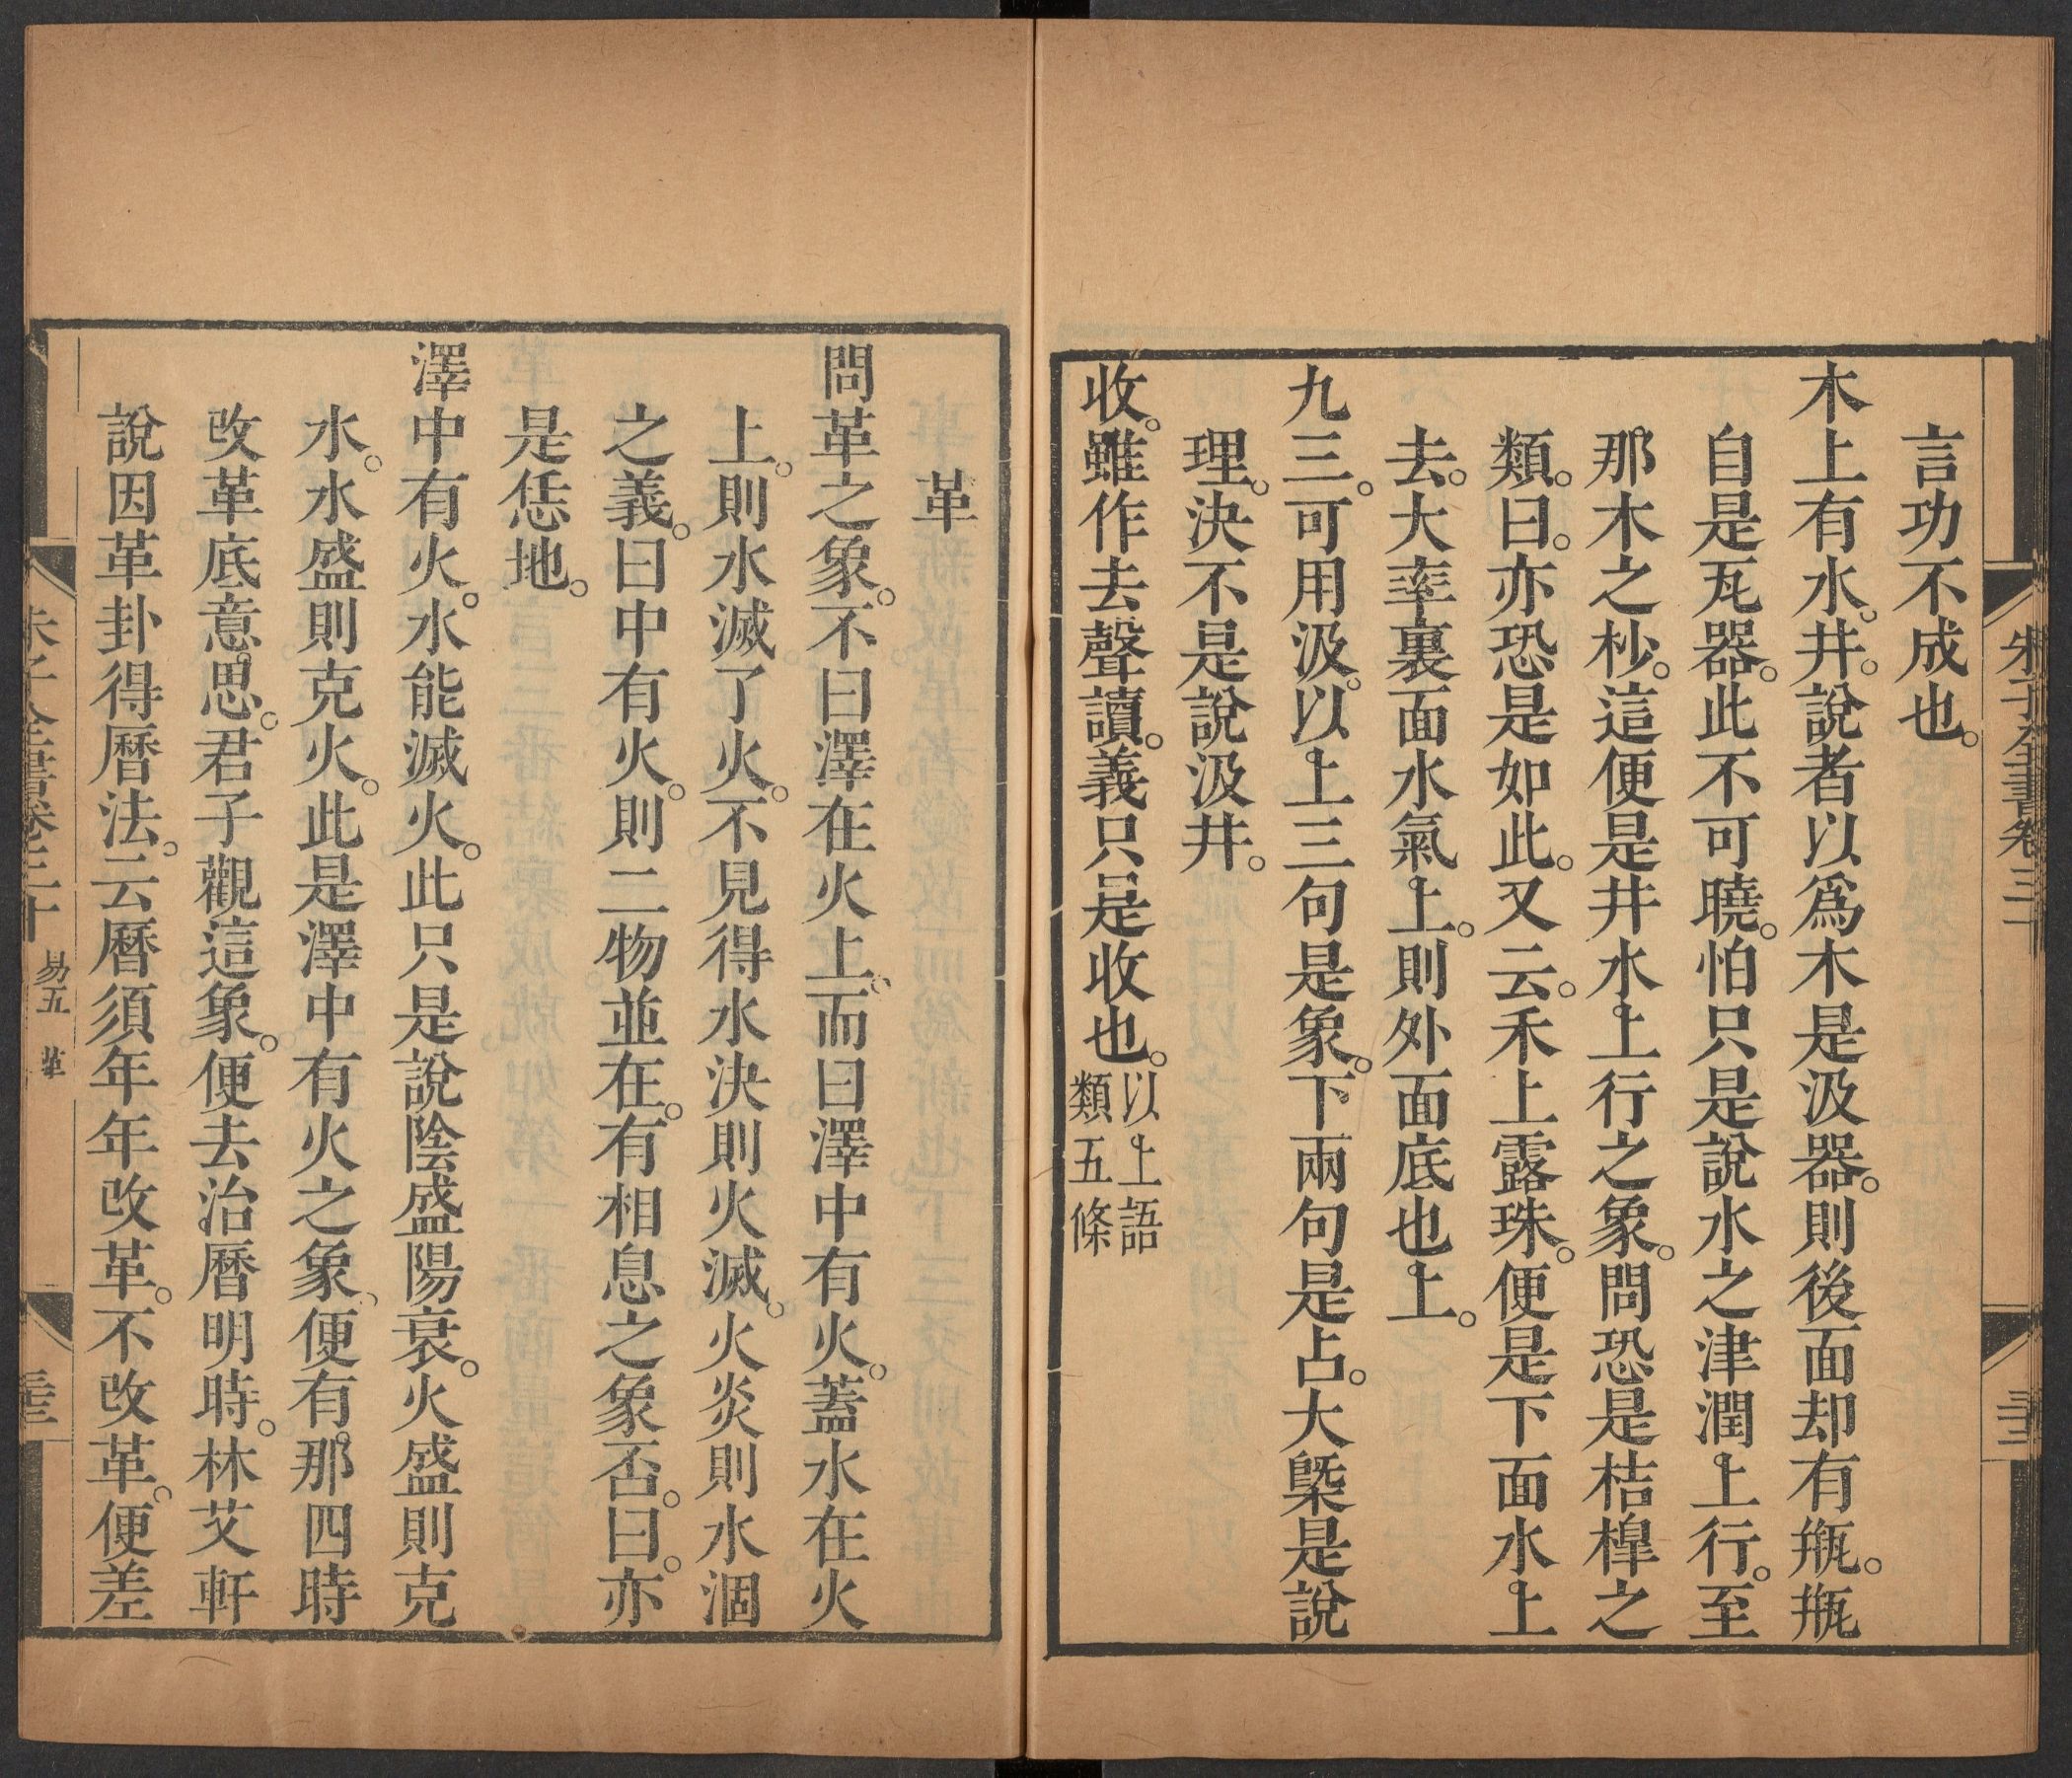 朱子全書卷三十
三十二
言功不成也。
木上有水。井。說者以爲木是汲器。則後面却有瓶。瓶
自是瓦器。此不可曉。怕只是說水之津潤上行。至
那木之杪。這便是井水上行之象。問恐是桔槹之
類。曰。亦恐是如此。又云。禾上露珠。便是下面水上
去。大率裏面水氣上。則外面底也上。
九三。可用汲。以上三句是象。下兩句是占。大槩是說
理。決不是說汲井。
收。雖作去聲讀。義只是收也。以上語
類五條
革
問革之象。不曰澤在火上。而曰澤中有火。蓋水在火
上。則水滅了火。不見得水決則火滅。火炎則水涸
之義。曰中有火。則二物並在。有相息之象否。曰。亦
是恁地。
澤中有火。水能滅火。此只是說陰盛陽衰。火盛則克
水。水盛則克火。此是澤中有火之象。便有那四時
改革底意思。君子觀這象。便去治曆明時。林艾軒
說因革卦得曆法。云曆須年年改革。不改革。便差
朱子全書卷三十 易五 革
三十三